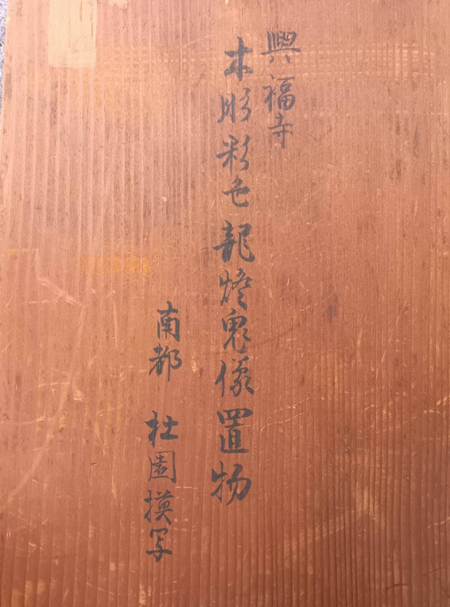 興福寺
木彫彩色龍燈鬼像置物
南都 杜園模写